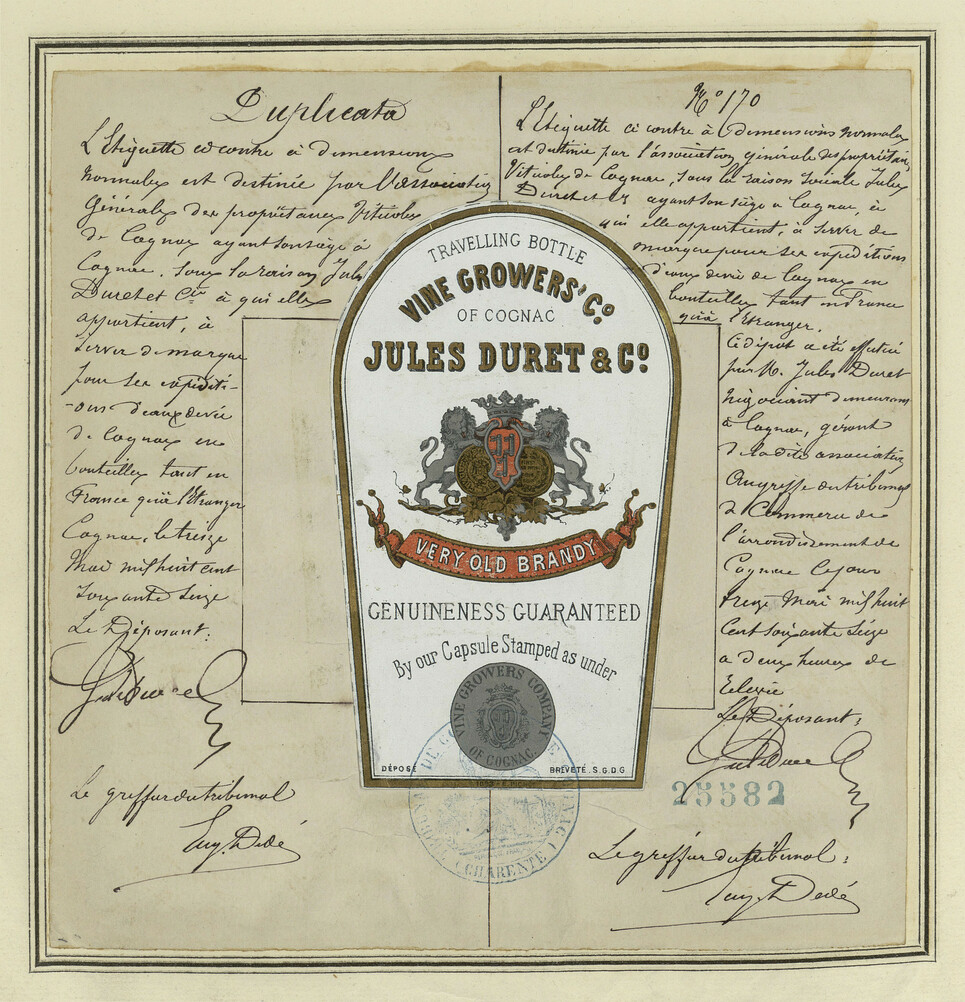 Duplicata
L'Etiquette ci contre à dimensions
normales est destinée par l'association
Générale des propriétaires Viticoles
de Cognac ayant son siège à
Cognac, sous la raison Jules
Duret et Cie à qui elle
appartient, à
servir de marque
pour ses expéditi-
-ons d'eaux de vie
de Cognac en
bouteilles tant en
France qu'à l'Etranger
Cognac, le treize
Mai mil huit cent
soixante seize
Le Déposant:
Jules Duret
Le greffier du tribunal
Eug. Dedé
No 170
L'Etiquette ci contre à dimensions normales
est destinée par l'association générale des propriétaires
Viticoles de Cognac, sous la raison sociale Jules
Duret et Cie ayant son siège à Cognac, à
qui elle appartient, à servir de
marque pour ses expéditions
d'eaux de vie de Cognac en
bouteilles tant en France
qu'à l'Etranger.
Ce dépôt a été effectué
par M. Jules Duret
négociant demeurant
à Cognac, gérant
de la dite association
au greffe du tribunal
de Commerce de
l'arrondissement de
Cognac ce jour
treize Mai mil huit
cent soixante seize
à deux heures de
relevée
Le Déposant:
Jules Duret
25582
Le greffier du tribunal:
Eug. Dedé
TRAVELLING BOTTLE
VINE GROWERS' Co.
OF COGNAC
JULES DURET & Co.
VERY OLD BRANDY
GENUINENESS GUARANTEED
By our Capsule Stamped as under
VINE GROWERS COMPANY
OF COGNAC
DÉPOSÉ
BREVETÉ. S.G.D.G
(CHARENTE)